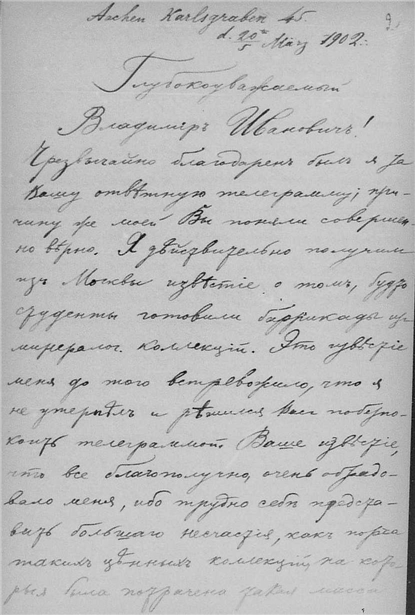 Aachen Karlsgraben 45.
d. 20ten März 1902.
Глубокоуважаемый
Владиміръ Ивановичъ!
Чрезвычайно благодаренъ былъ я за
Вашу отвѣтную телеграмму; при-
чину же моей Вы поняли совершен-
но вѣрно. Я дѣйствительно получилъ
изъ Москвы извѣстіе о томъ, будто
студенты готовили баррикады изъ
минералог. коллекцій. Это извѣстіе
меня до того встревожило, что я
не утерпѣлъ и рѣшился Васъ побезпо-
коить телеграммой. Ваше извѣстіе,
что все благополучно, очень обрадо-
вало меня, ибо трудно себѣ предста-
вить большаго несчастія, какъ порча
такихъ цѣнныхъ коллекцій, на кото-
рыя была потрачена такая масса